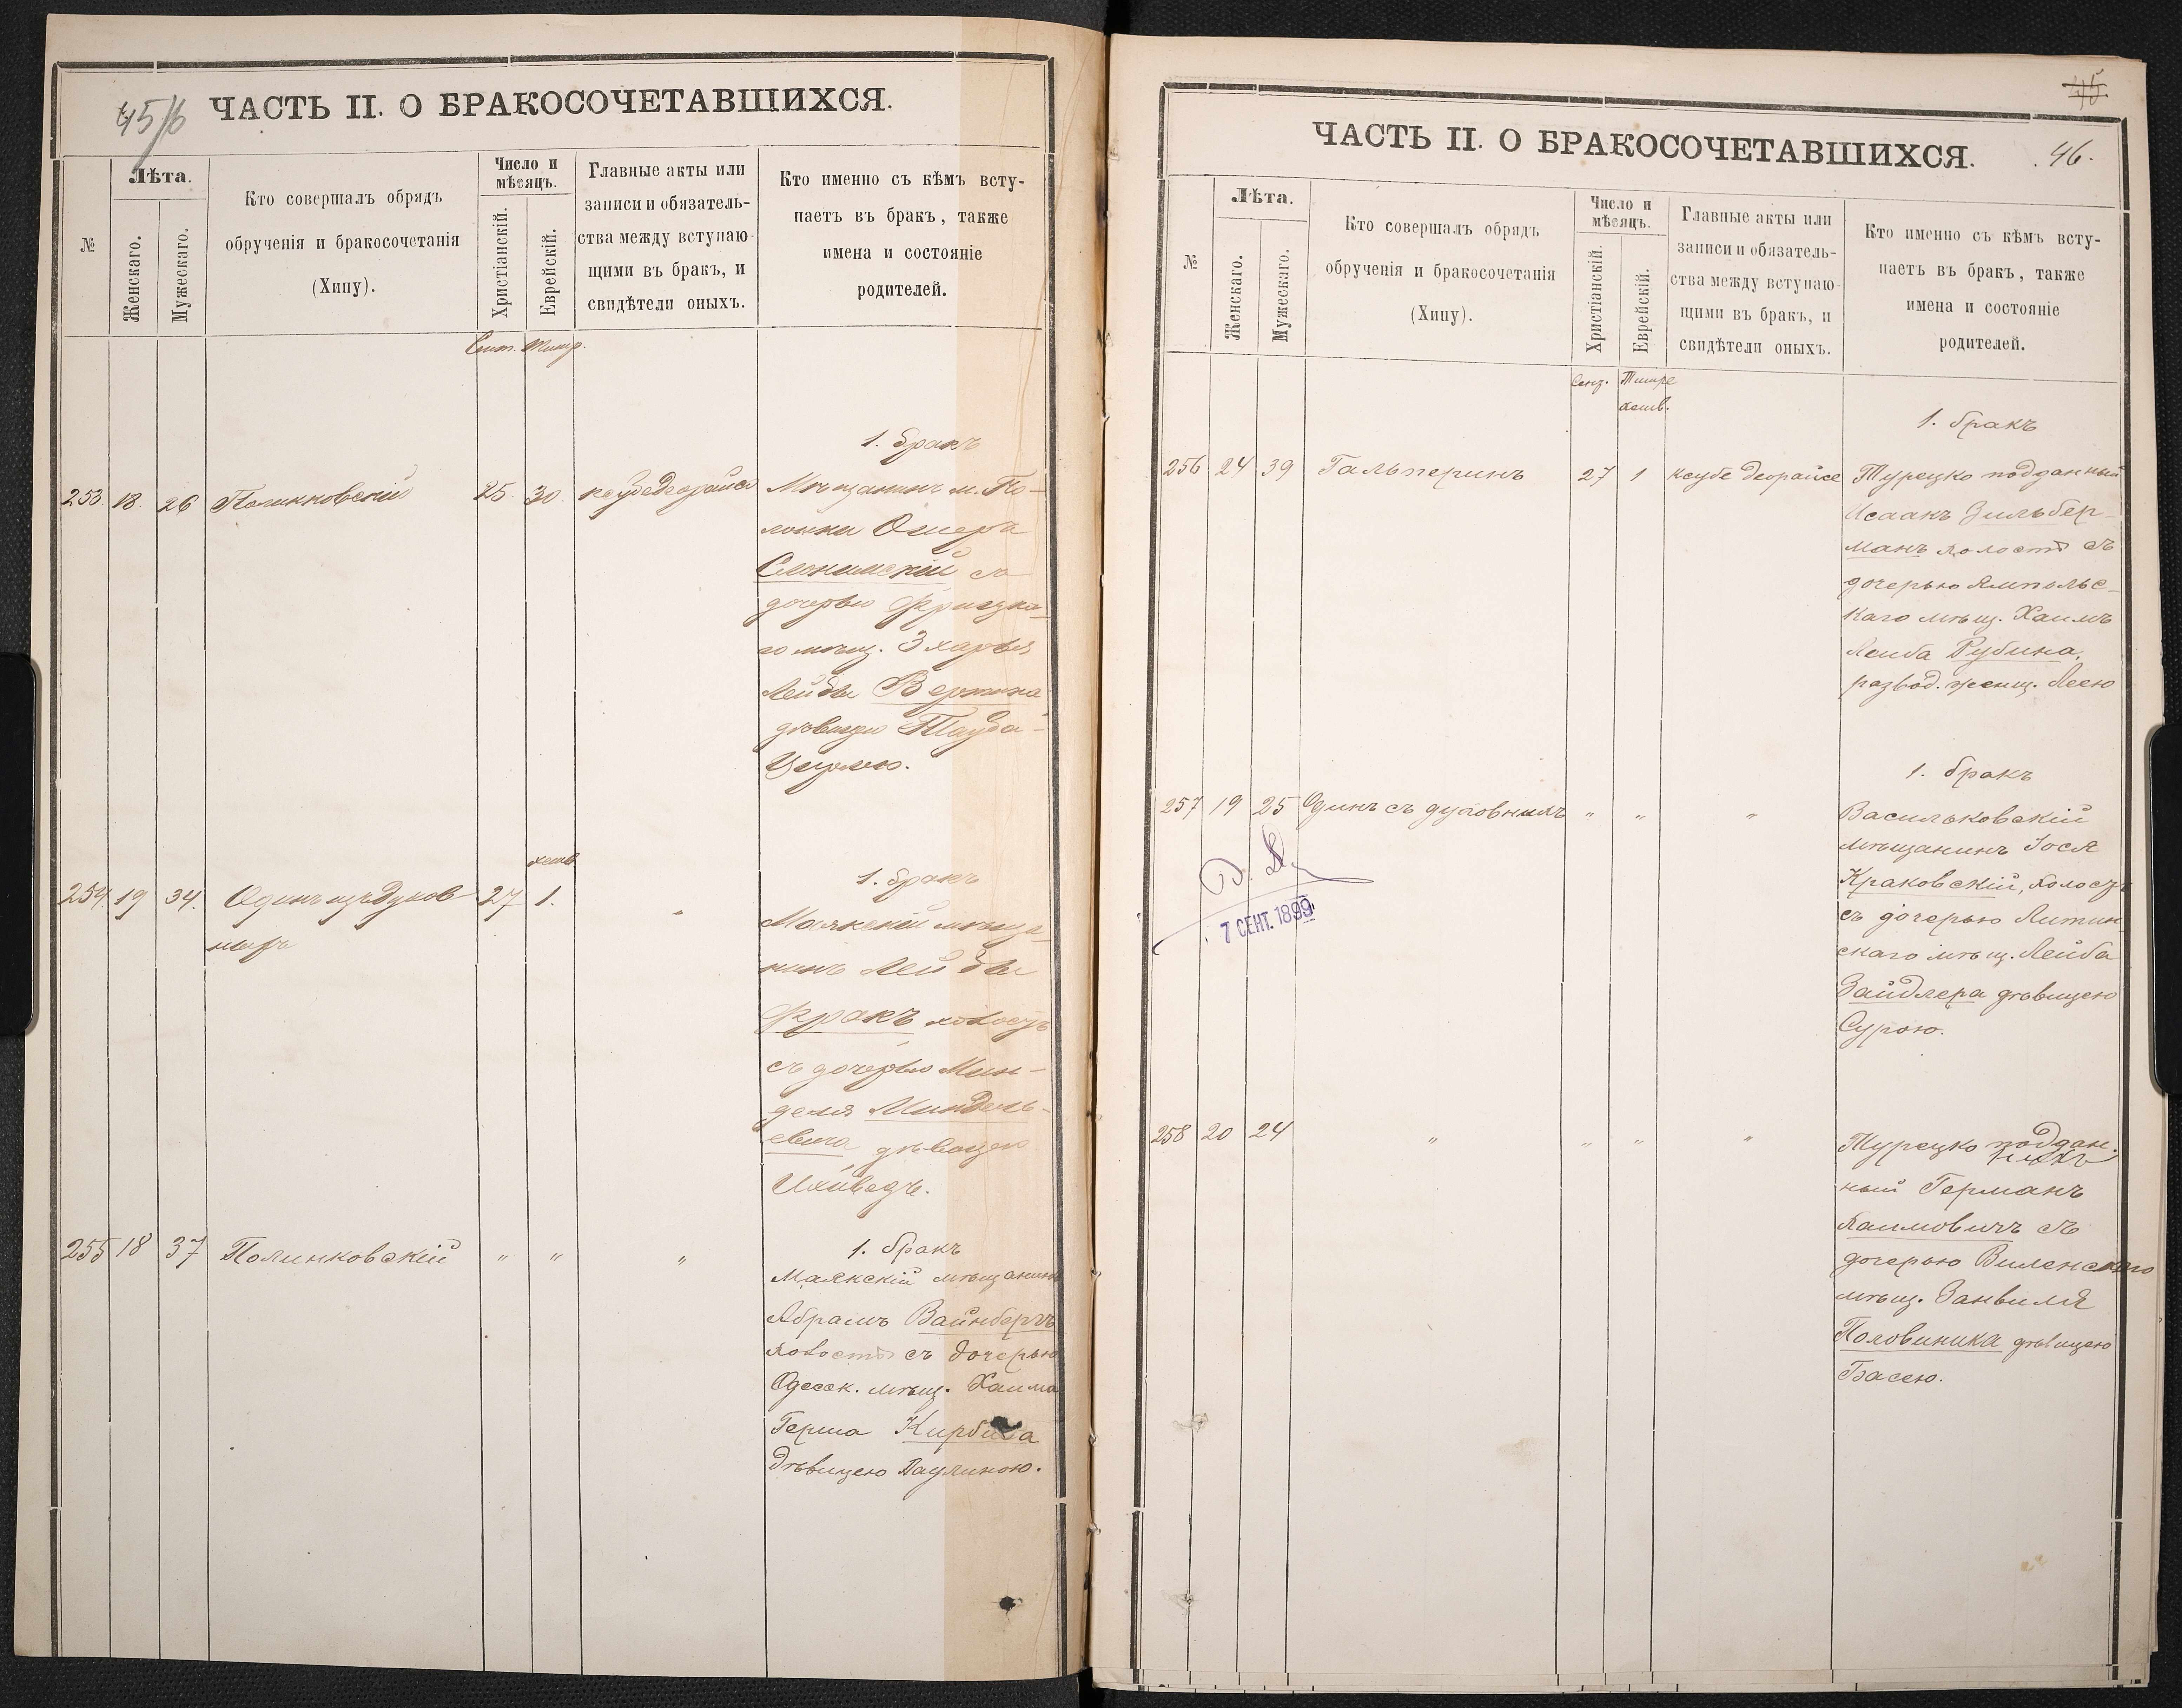 45/6
ЧАСТЬ II. О БРАКОСОЧЕТАВШИХСЯ.
№
Лѣта.
Женскаго.
Мужескаго.
Кто совершалъ обрядъ
обрученія и бракосочетанія
(Хипу).
Число и
мѣсяцъ.
Христіанскій.
Еврейскій.
Главные акты или
записи и обязатель-
ства между вступаю-
щими въ бракъ, и
свидѣтели оныхъ.
Кто именно съ кѣмъ всту-
паетъ въ бракъ, также
имена и состояніе
родителей.
Сент. Тишр.
1. бракъ
253. 18. 26 Полинковскій 25. 30. Мѣщанинъ м.
Ошеръ
Слонимскій съ
дочерью
го мѣщ.
Лейбы
дѣвицею Тауба-
Цирлею.
хешв.
1. бракъ
254. 19 34. Одинъ изъ духов 27 1. „
ныхъ
Маякскій мѣща-
нинъ Лейбы
Фракъ холостъ
съ дочерью Мен-
деля Миндель-
евича дѣвицею
255 18 37 Полинковскій „ „ „ 1. бракъ
Маякскій мѣщанинъ
Абрамъ Вайнбергъ
холостъ съ дочерью
Одесск. мѣщ. Хаима
Герша
дѣвицею Паулиною.
45.
ЧАСТЬ II. О БРАКОСОЧЕТАВШИХСЯ. 46.
№
Лѣта.
Женскаго.
Мужескаго.
Кто совершалъ обрядъ
обрученія и бракосочетанія
(Хипу).
Число и
мѣсяцъ.
Христіанскій.
Еврейскій.
Главные акты или
записи и обязатель-
ства между вступаю-
щими въ бракъ, и
свидѣтели оныхъ.
Кто именно съ кѣмъ всту-
паетъ въ бракъ, также
имена и состояніе
родителей.
Тишре
хешв.
1. бракъ
256 24 39 Гальперинъ 27 1 ксубе деорайсе Турецко подданный
Исаакъ Зильбер-
манъ холостъ съ
дочерью Ямпольс-
каго мѣщ. Хаимъ
Лейба Рубина,
развод. женщ. Леею
1. бракъ
257 19 25 Одинъ съ духовныхъ „ „ „ Васильковскій
мѣщанинъ Іося
Краковскій, холостъ
съ дочерью Литин-
скаго мѣщ. Лейба
Зайдлера дѣвицею
Сурою.
7 СЕНТ. 1899
258 20 24 „ „ „ „ Турецко поддан.
ный Германъ
Хаимовичъ съ
дочерью Виленскаго
мѣщ. Занвиля
Половиника дѣвицею
Басею.